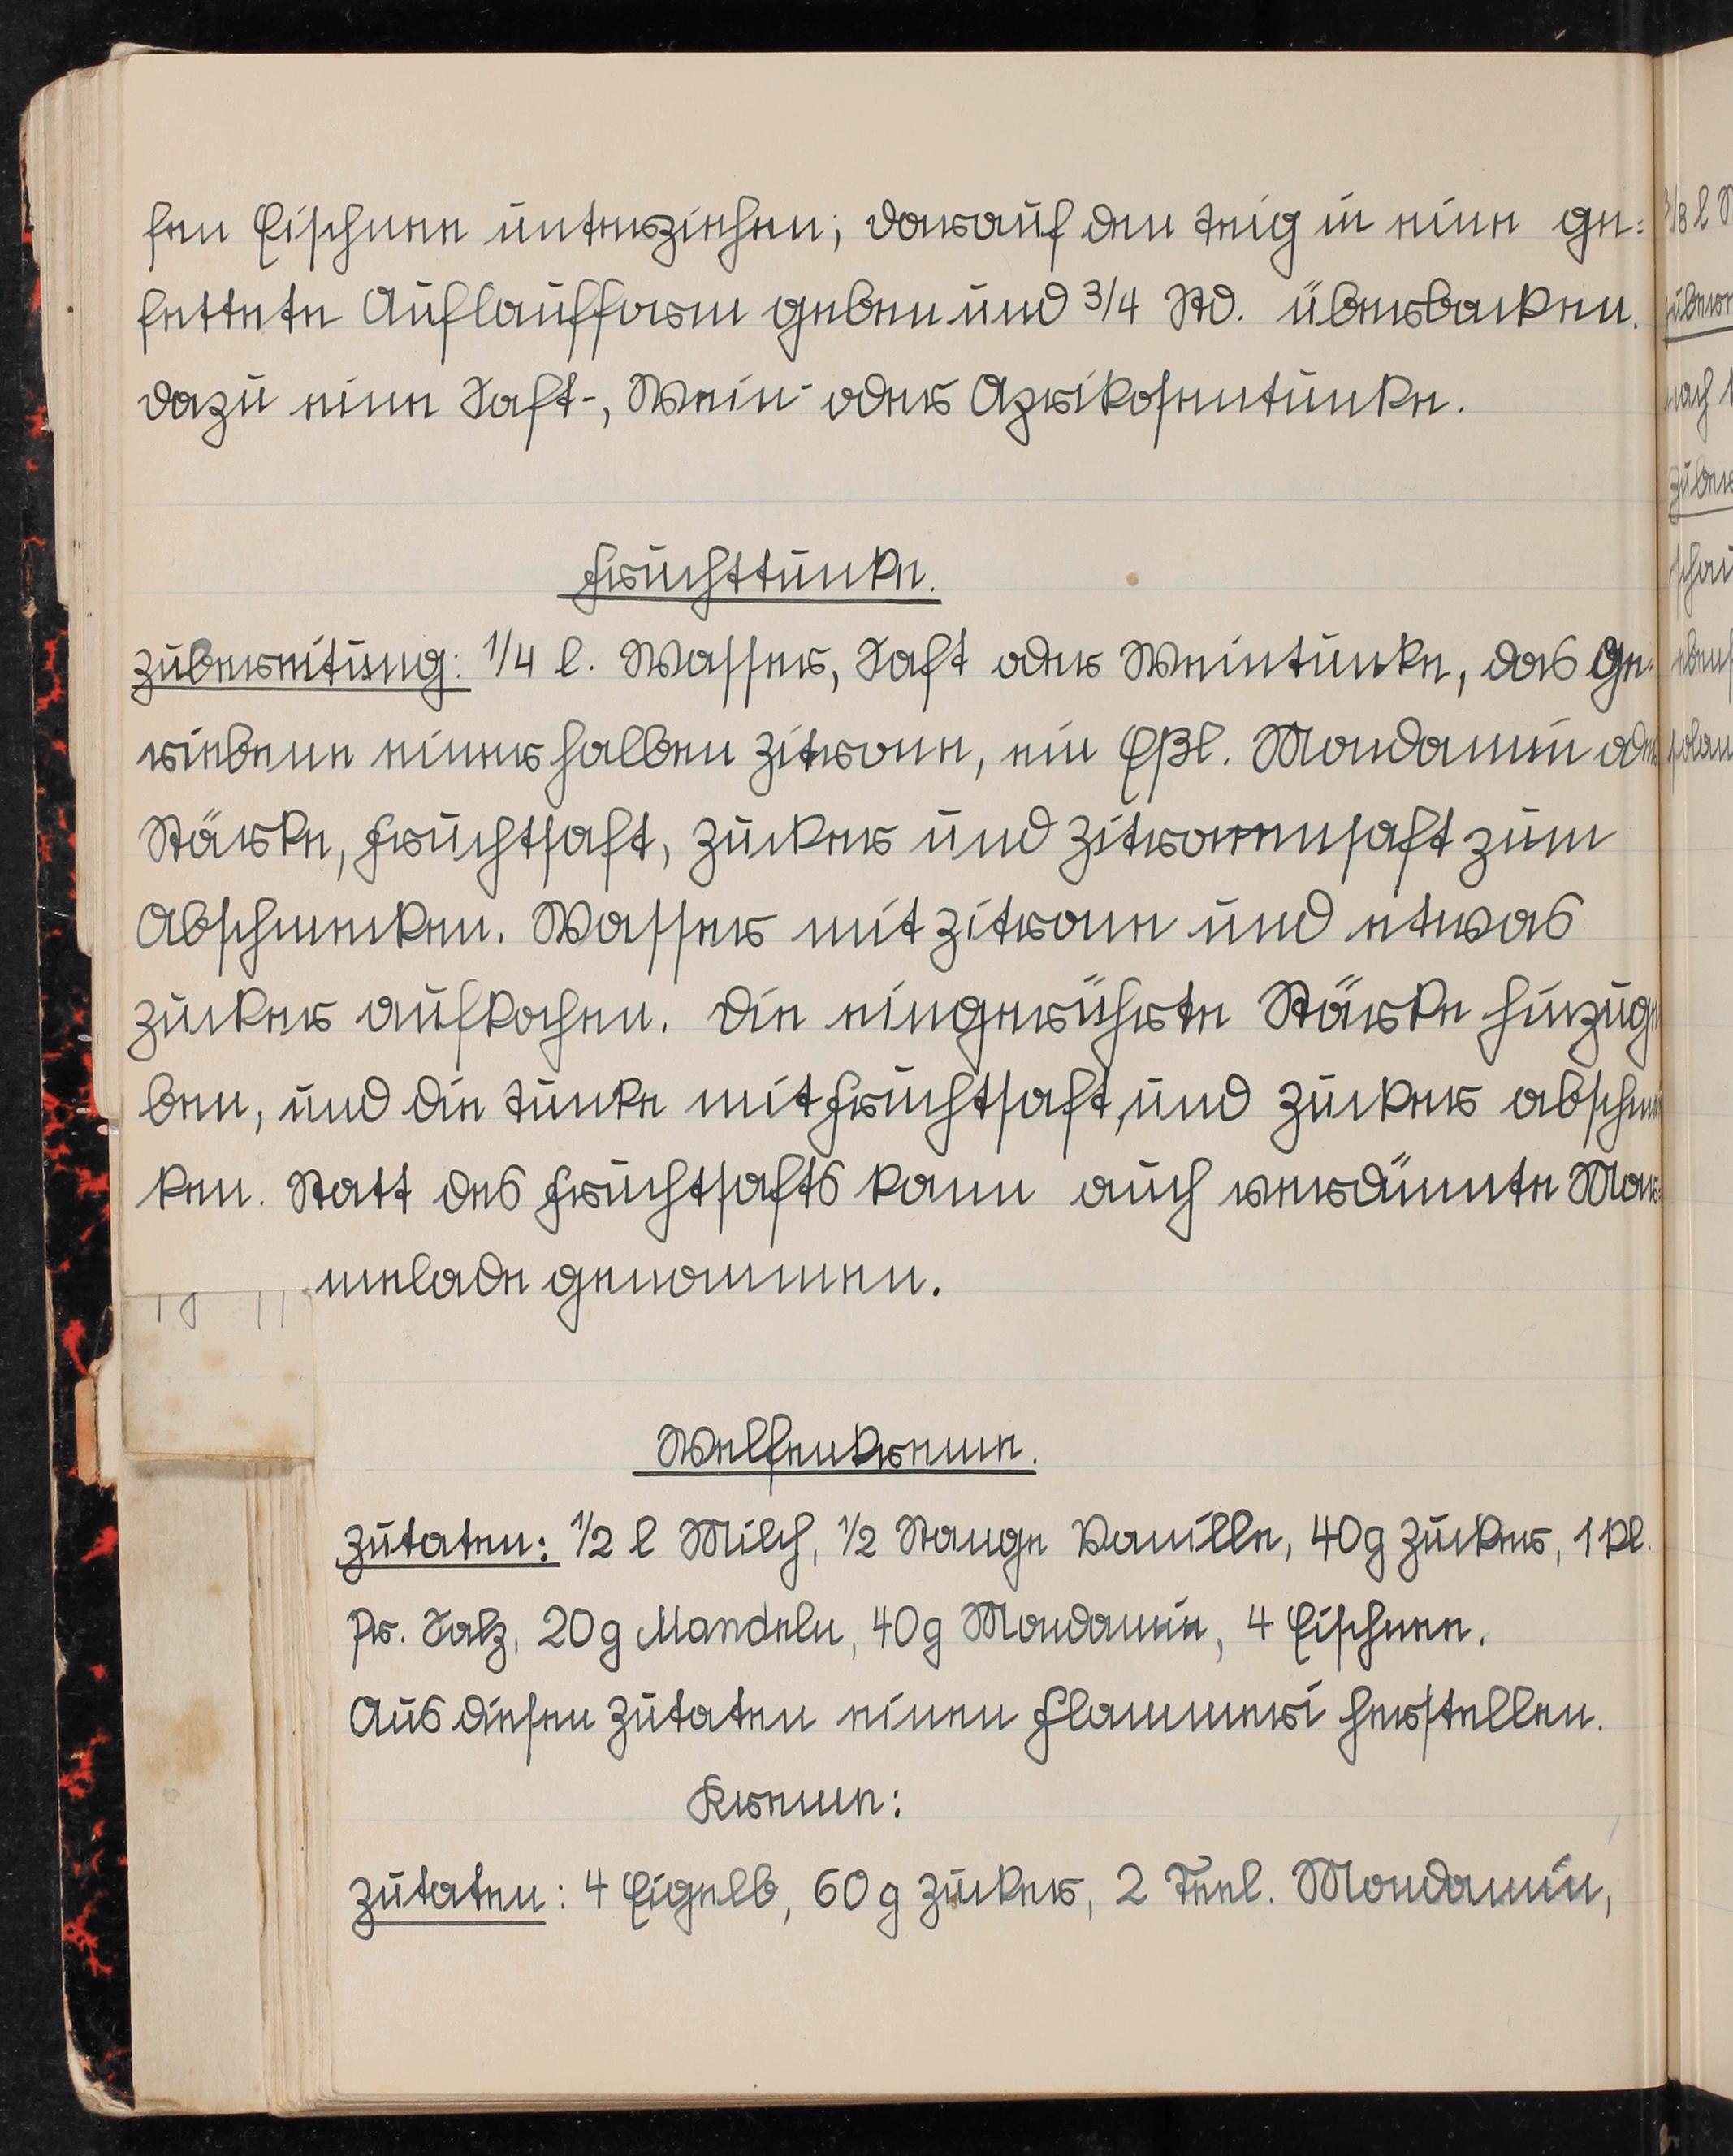 fen Eischnee unterziehen; darauf den Teig in eine ge=
fettete Auflaufform geben und 3/4 Std. überbacken.
dazu eine Saft-, Wein- oder Aprikosentunke.
Fruchttunke.
Zubereitung: 1/4 l. Wasser, Saft oder Weintunke, das Ge-
riebene einer halben Zitrone, ein Eßl. Mondamin oder
Stärke, Fruchtsaft, Zucker und Zitronensaft zum
Abschmecken. Wasser mit Zitrone und etwas
Zucker aufkochen. Die eingerührte Stärke hinzuge
ben, und die Tunke mit Fruchtsaft, und Zucker abschme
ken. Statt des Fruchtsafts kann auch verdünnte Mar=
melade genommen.
Welfenkreme.
Zutaten: 1/2 l Milch, 1/2 Stange Vanille, 40g Zucker, 1 Kl.
Pr. Salz, 20g Mandeln, 40g Mondamin, 4 Eischnee.
Aus diesen Zutaten einen Flammeri herstellen.
Kreme:
Zutaten: 4 Eigelb, 60g Zucker, 2 Teel. Mondamin,